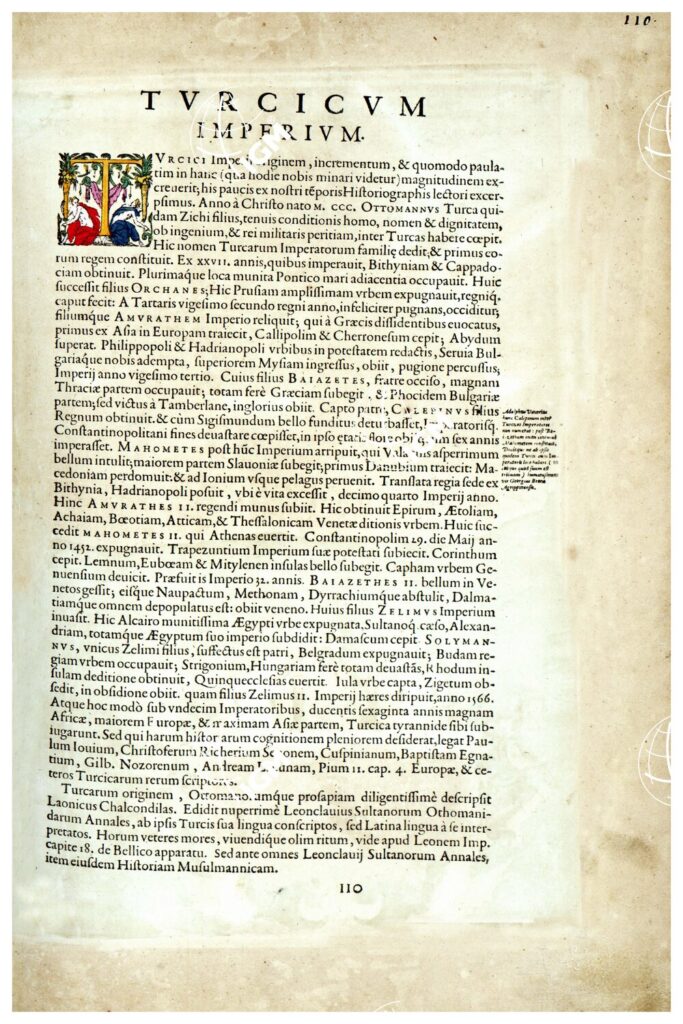 110.
TVRCICVM
IMPERIVM.
TVRCICI Imperij originem, incrementum, & quomodo paula-
tim in hanc (qua hodie nobis minari videtur) magnitudinem ex-
creuerit; his paucis ex nostri tẽporis Historiographis lectori excer-
psimus. Anno à Christo nato M. CCC. OTTOMANNVS Turca qui-
dam Zichi filius, tenuis conditionis homo, nomen & dignitatem,
ob ingenium, & rei militaris peritiam, inter Turcas habere cœpit.
Hic nomen Turcarum Imperatorum familię dedit; & primus eo-
rum regem constituit. Ex XXVII. annis, quibus imperauit, Bithyniam & Cappado-
ciam obtinuit. Plurimaque loca munita Pontico mari adiacentia occupauit. Huic
successit filius ORCHANES; Hic Prusiam amplissimam vrbem expugnauit, regniq.
caput fecit: A Tartaris vigesimo secundo regni anno, infeliciter pugnans, occiditur;
filiumque AMVRATHEM Imperio reliquit; qui à Græcis dissidentibus euocatus,
primus ex Asia in Europam traiecit, Callipolim & Cherronesum cepit; Abydum
superat. Philippopoli & Hadrianopoli vrbibus in potestatem redactis, Seruia Bul-
gariaque nobis adempta, superiorem Mysiam ingressus, obiit, pugione percussus;
Imperij anno vigesimo tertio. Cuius filius BAIAZETES, fratre occiso, magnam
Thraciæ partem occupauit; totam ferè Græciam subegit, & Phocidem Bulgariæ
partem; sed victus à Tamberlane, inglorius obiit. Capto patre, CALEPINVS filius
Regnum obtinuit. & cùm Sigismundum bello funditus deturbasset,
Constantinopolitani fines deuastare cœpisset, in ipso sex annis
imperasset. MAHOMETES post hũc Imperium arripuit, qui asperrimum
bellum intulit; maiorem partem Slauoniæ subegit; primus Danubium traiecit: Ma-
cedoniam perdomuit: & ad Ionium vsque pelagus peruenit. Translata regia sede ex
Bithynia, Hadrianopoli posuit, vbi è vita excessit, decimo quarto Imperij anno.
Hinc AMVRATHES II. regendi munus subiit. Hic obtinuit Epirum, Ætoliam,
Achaiam, Bœotiam, Atticam, & Thessalonicam Venetæ ditionis vrbem. Huic suc-
cedit MAHOMETES II. qui Athenas euertit. Constantinopolim 29. die Maij an-
no 1452. expugnauit. Trapezuntium Imperium suæ potestati subiecit. Corinthum
cepit. Lemnum, Eubœam & Mitylenen insulas bello subegit. Capham vrbem Ge-
nuensium deuicit. Præfuit is Imperio 32. annis. BAIAZETHES II. bellum in Ve-
netos gessit; eisque Naupactum, Methonam, Dyrrachiumque abstulit, Dalma-
tiamque omnem depopulatus est: obiit veneno. Huius filius ZELIMVS Imperium
inuasit. Hic Alcairo munitissima Ægypti vrbe expugnata, Sultanoq. cæso, Alexan-
driam, totamque Ægyptum suo imperio subdidit: Damascum cepit. SOLYMAN-
NVS, vnicus Zelimi filius, suffectus est patri, Belgradum expugnauit; Budam re-
giam vrbem occupauit; Strigonium, Hungariam ferè totam deuastãs, Rhodum in-
sulam deditione obtinuit, Quinquecclesias euertit. Iula vrbe capta, Zigetum ob-
sedit, in obsidione obiit. quam filius Zelimus II. Imperij hæres diripuit, anno 1566.
Atque hoc modò sub vndecim Imperatoribus, ducentis sexaginta annis magnam
Africæ, maiorem Europæ, & maximam Asiæ partem, Turcica tyrannide sibi sub-
iugarunt. Sed qui harum histor arum cognitionem pleniorem desiderat, legat Pau-
lum Iouium, Christoferum Richerium Cuspinianum, Baptistam Egna-
tium, Gilb. Nozorenum, Andream Pium II. cap. 4. Europæ, & ce-
teros Turcicarum rerum scriptores.
Turcarum originem, Ottomano. umque prosapiam diligentissimè descripsit
Laonicus Chalcondilas. Edidit nuperrimè Leonclauius Sultanorum Othomani-
darum Annales, ab ipsis Turcis sua lingua conscriptos, sed Latina lingua à se inter-
pretatos. Horum veteres mores, viuendique olim ritum, vide apud Leonem Imp.
capite 18. de Bellico apparatu. Sed ante omnes Leonclauij Sultanorum Annales,
item eiusdem Historiam Musulmannicam.
110